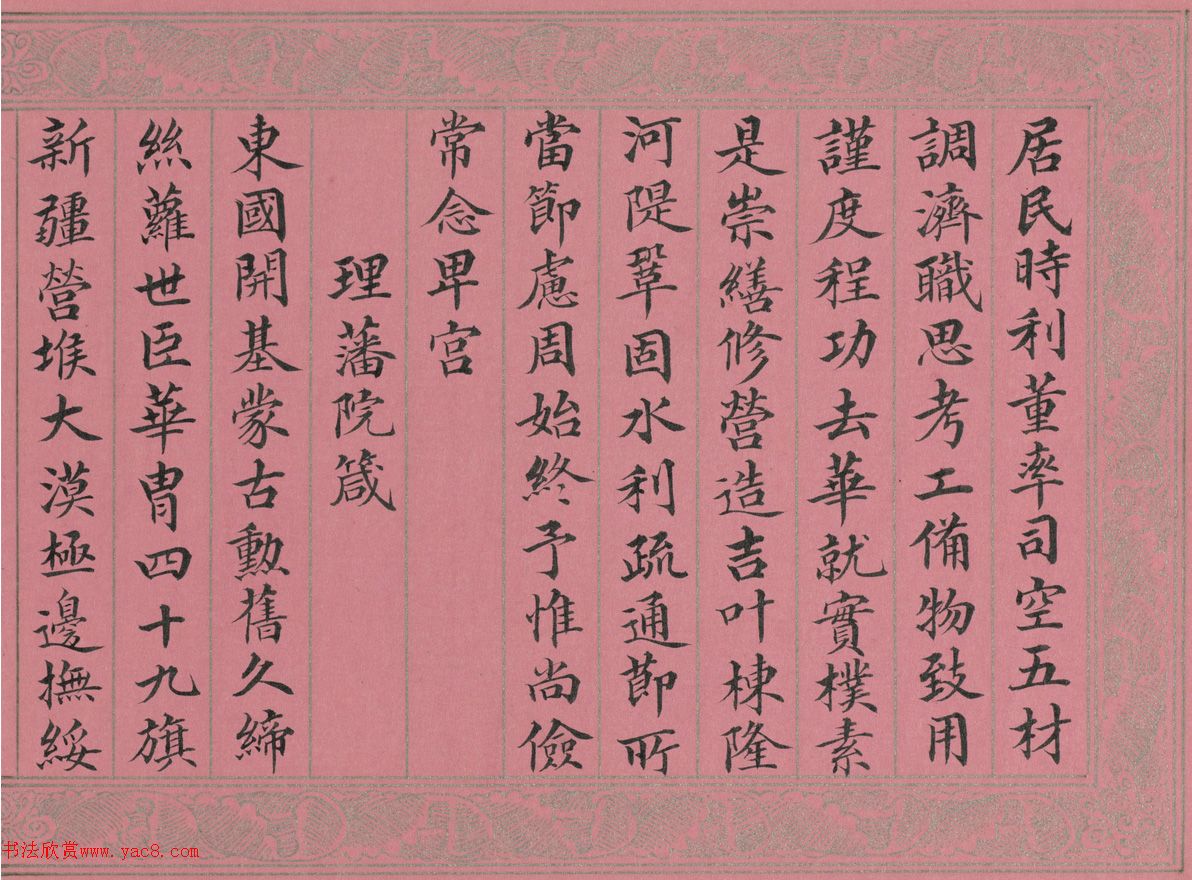 居民時利董率司空五材
調濟職思考工備物致用
謹度程功去華就實樸素
是崇繕修營造吉叶棟隆
河隄鞏固水利疏通節所
當節慮周始終予惟尚儉
常念卑宫
理藩院箴
東國開基蒙古勳舊久締
絲蘿世臣華胄四十九旗
新疆營堠大漠極邊撫綏
书法欣赏www.yac8.com